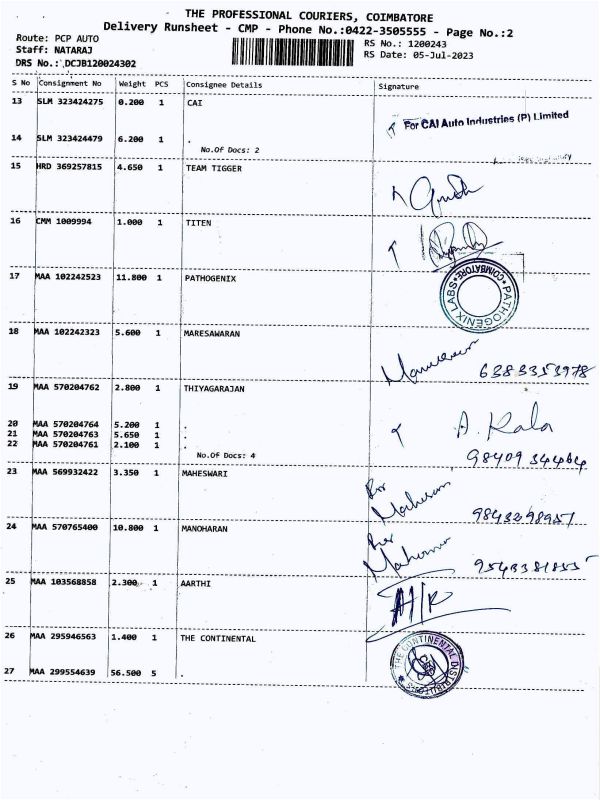 THE PROFESSIONAL COURIERS, COIMBATORE
Delivery Runsheet - CMP - Phone No.:0422-3505555 - Page No.:2
Route: PCP AUTO
RS No.: 1200243
Staff: NATARAJ
RS Date: 05-Jul-2023
DRS No.: DCJB120024302
S No Consignment No Weight PCS Consignee Details Signature
13 SLM 323424275 0.200 1 CAI
For CAI Auto Industries (P) Limited
14 SLM 323424479 6.200 1 .
No.Of Docs: 2
15 HRD 369257815 4.650 1 TEAM TIGGER
16 CMM 1009994 1.000 1 TITEN
17 MAA 102242523 11.800 1 PATHOGENIX
PATHOGENIX LABS * COIMBATORE *
18 MAA 102242323 5.600 1 MARESAWARAN
6383353978
19 MAA 570204762 2.800 1 THIYAGARAJAN
20 MAA 570204764 5.200 1 .
A. Kala
21 MAA 570204763 5.650 1 .
22 MAA 570204761 2.100 1 .
No.Of Docs: 4
98409 34464
23 MAA 569932422 3.350 1 MAHESWARI
9843298957
24 MAA 570765400 10.800 1 MANOHARAN
9543381855
25 MAA 103568858 2.300 1 AARTHI
26 MAA 295946563 1.400 1 THE CONTINENTAL
THE CONTINENTAL DISTRIBUTORS
27 MAA 299554639 56.500 5 .